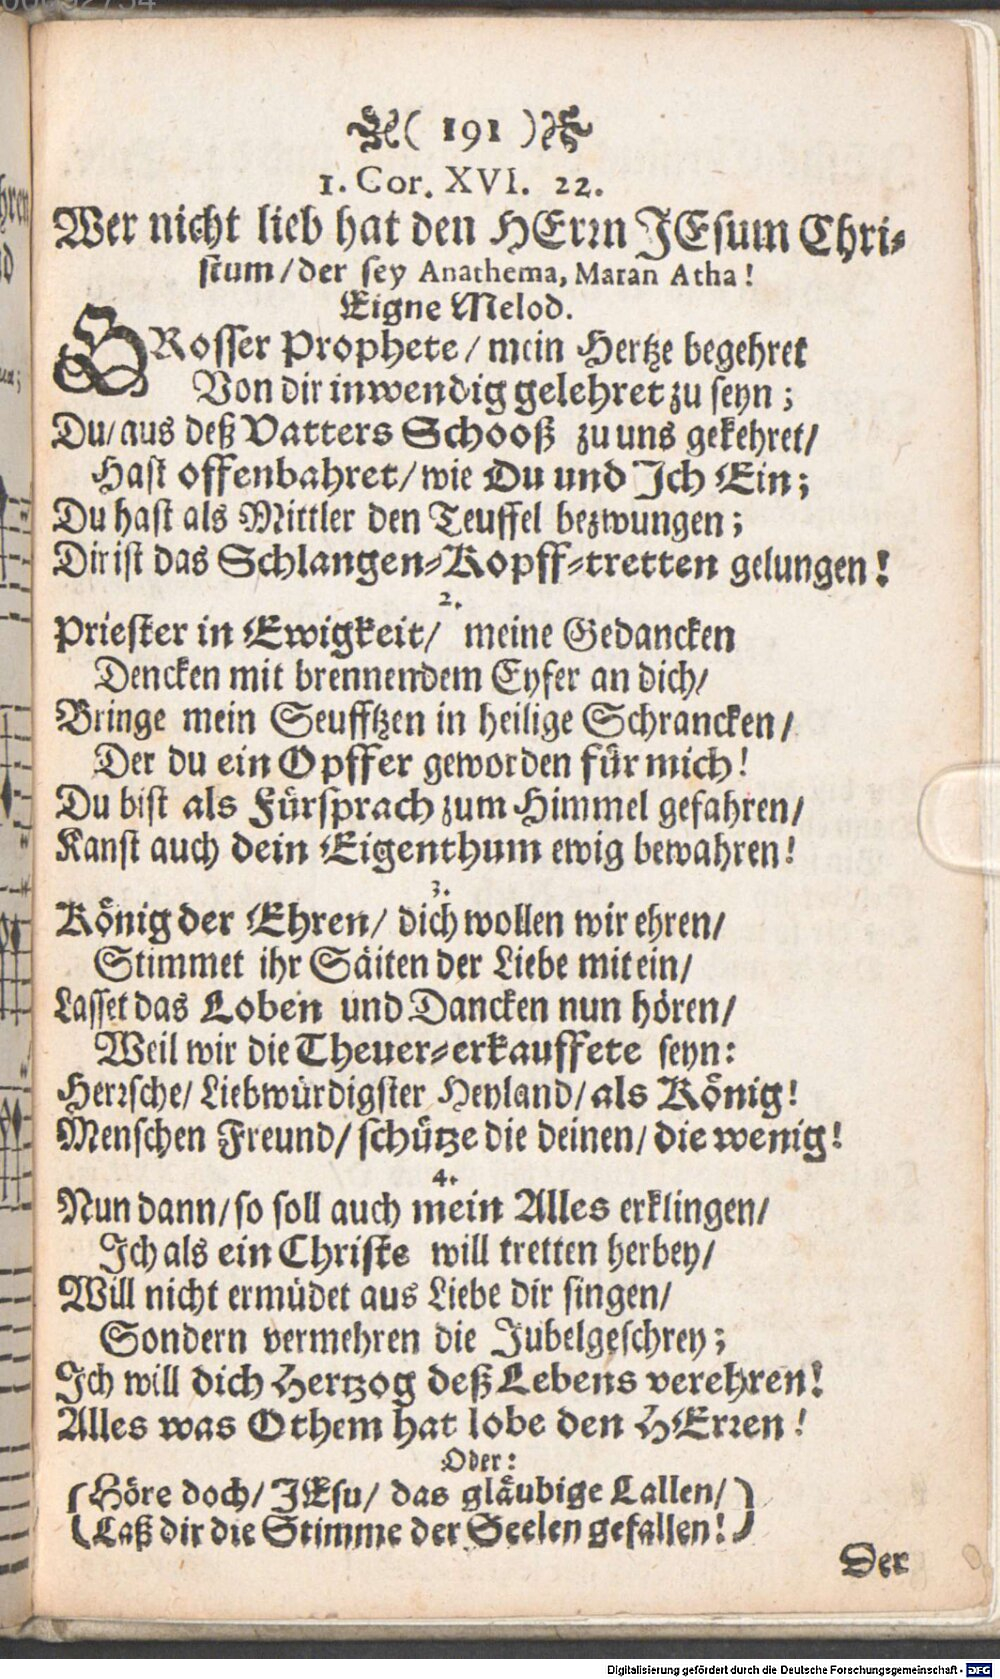 ( 191 )
1. Cor. XVI. 22.
Wer nicht lieb hat den HErrn JEsum Chri-
stum / der sey Anathema, Maran Atha!
Eigne Melod.
GRosser Prophete / mein Hertze begehret
Von dir inwendig gelehret zu seyn;
Du / aus deß Vatters Schooß zu uns gekehret /
Hast offenbahret / wie Du und Ich Ein;
Du hast als Mittler den Teuffel bezwungen;
Dir ist das Schlangen-Kopff-tretten gelungen!
2.
Priester in Ewigkeit / meine Gedancken
Dencken mit brennendem Eyfer an dich /
Bringe mein Seufftzen in heilige Schrancken /
Der du ein Opffer geworden für mich!
Du bist als Fürsprach zum Himmel gefahren /
Kanst auch dein Eigenthum ewig bewahren!
3.
König der Ehren / dich wollen wir ehren /
Stimmet ihr Säiten der Liebe mit ein /
Lasset das Loben und Dancken nun hören /
Weil wir die Theuer-erkauffete seyn:
Herrsche / Liebwürdigster Heyland / als König!
Menschen Freund / schütze die deinen / die wenig!
4.
Nun dann / so soll auch mein Alles erklingen /
Ich als ein Christe will tretten herbey /
Will nicht ermüdet aus Liebe dir singen /
Sondern vermehren die Jubelgeschrey;
Ich will dich Hertzog deß Lebens verehren!
Alles was Othem hat lobe den HErren!
Oder:
(Höre doch / JEsu / das gläubige Lallen /)
(Laß dir die Stimme der Seelen gefallen!)
Der
Digitalisierung gefördert durch die Deutsche Forschungsgemeinschaft - DFG